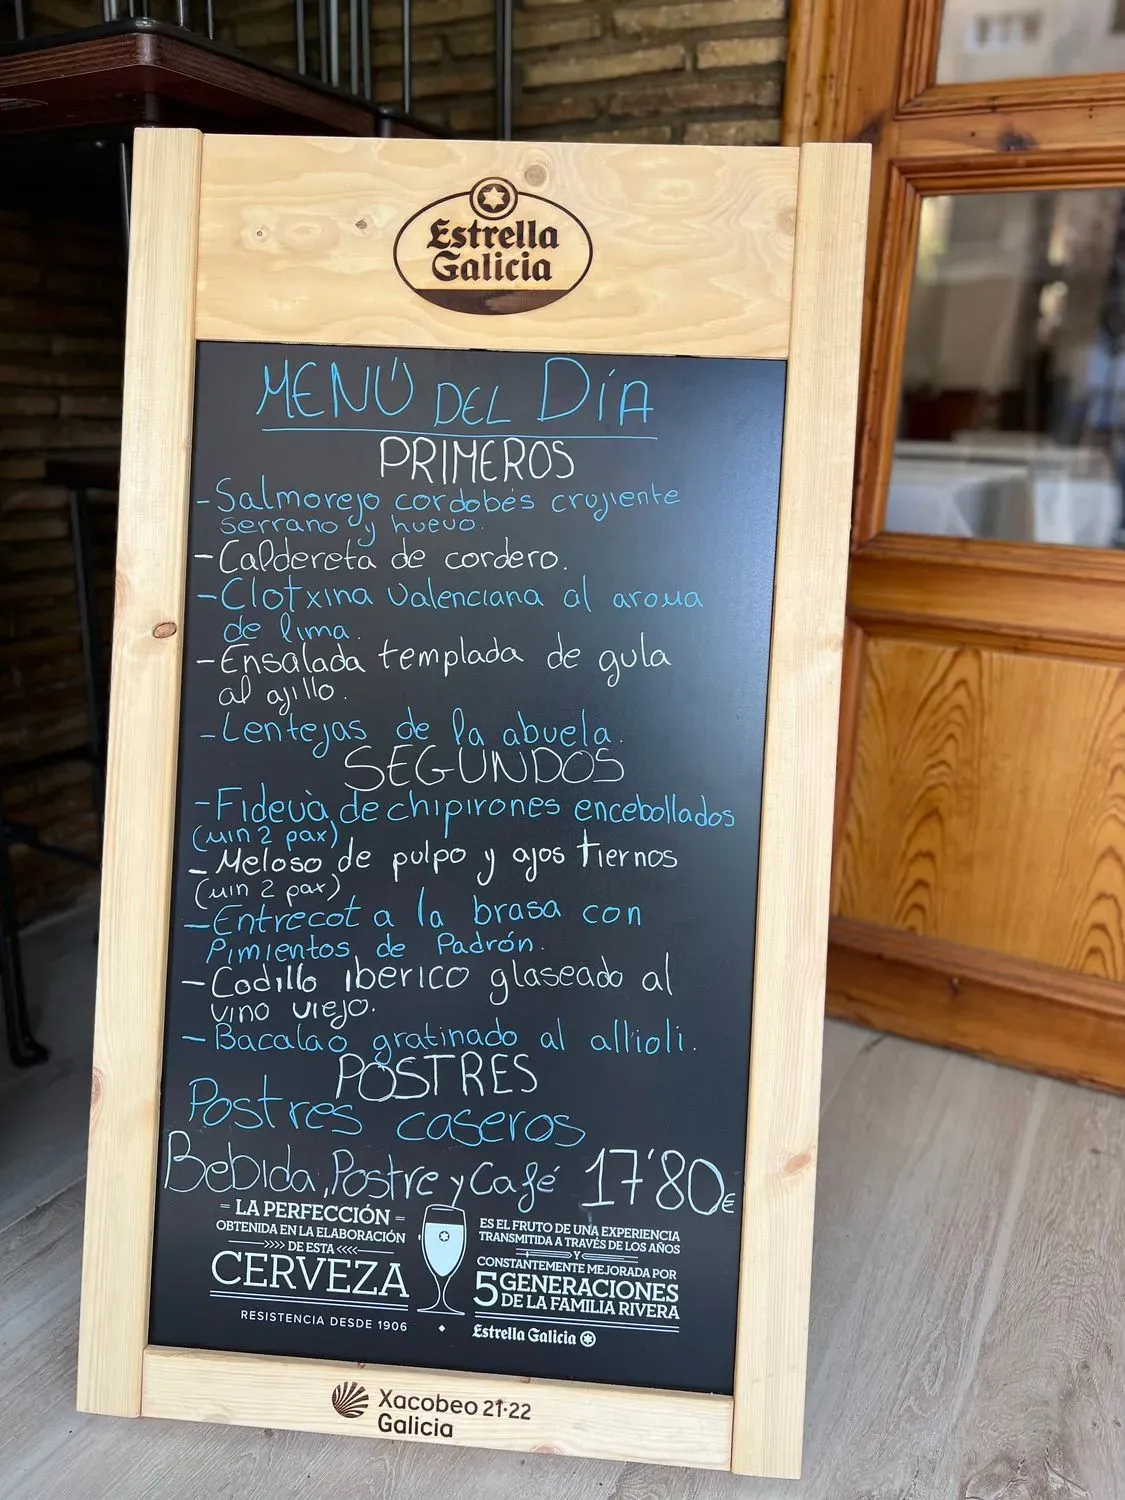 Estrella
Galicia
MENÚ DEL DÍA
PRIMEROS
- Salmorejo cordobés crujiente
serrano y huevo.
- Caldereta de cordero.
- Clotxina Valenciana al aroma
de lima.
- Ensalada templada de gula
al ajillo.
- Lentejas de la abuela.
SEGUNDOS
- Fideuà de chipirones encebollados
(min 2 pax)
- Meloso de pulpo y ajos tiernos
(min 2 pax)
- Entrecot a la brasa con
Pimientos de Padrón.
- Codillo iberico glaseado al
vino viejo.
- Bacalao gratinado al all'ioli.
POSTRES
Postres caseros
Bebida, Postre y Café 17'80€
LA PERFECCIÓN
OBTENIDA EN LA ELABORACIÓN
DE ESTA
CERVEZA
RESISTENCIA DESDE 1906
ES EL FRUTO DE UNA EXPERIENCIA
TRANSMITIDA A TRAVÉS DE LOS AÑOS
Y
CONSTANTEMENTE MEJORADA POR
5 GENERACIONES
DE LA FAMILIA RIVERA
Estrella Galicia
Xacobeo 21·22
Galicia